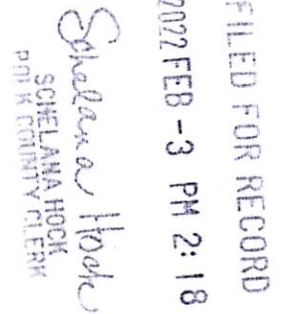 FILED FOR RECORD
2022 FEB -3 PM 2:18
Schelana Hock
SCHELANA HOCK
POLK COUNTY CLERK